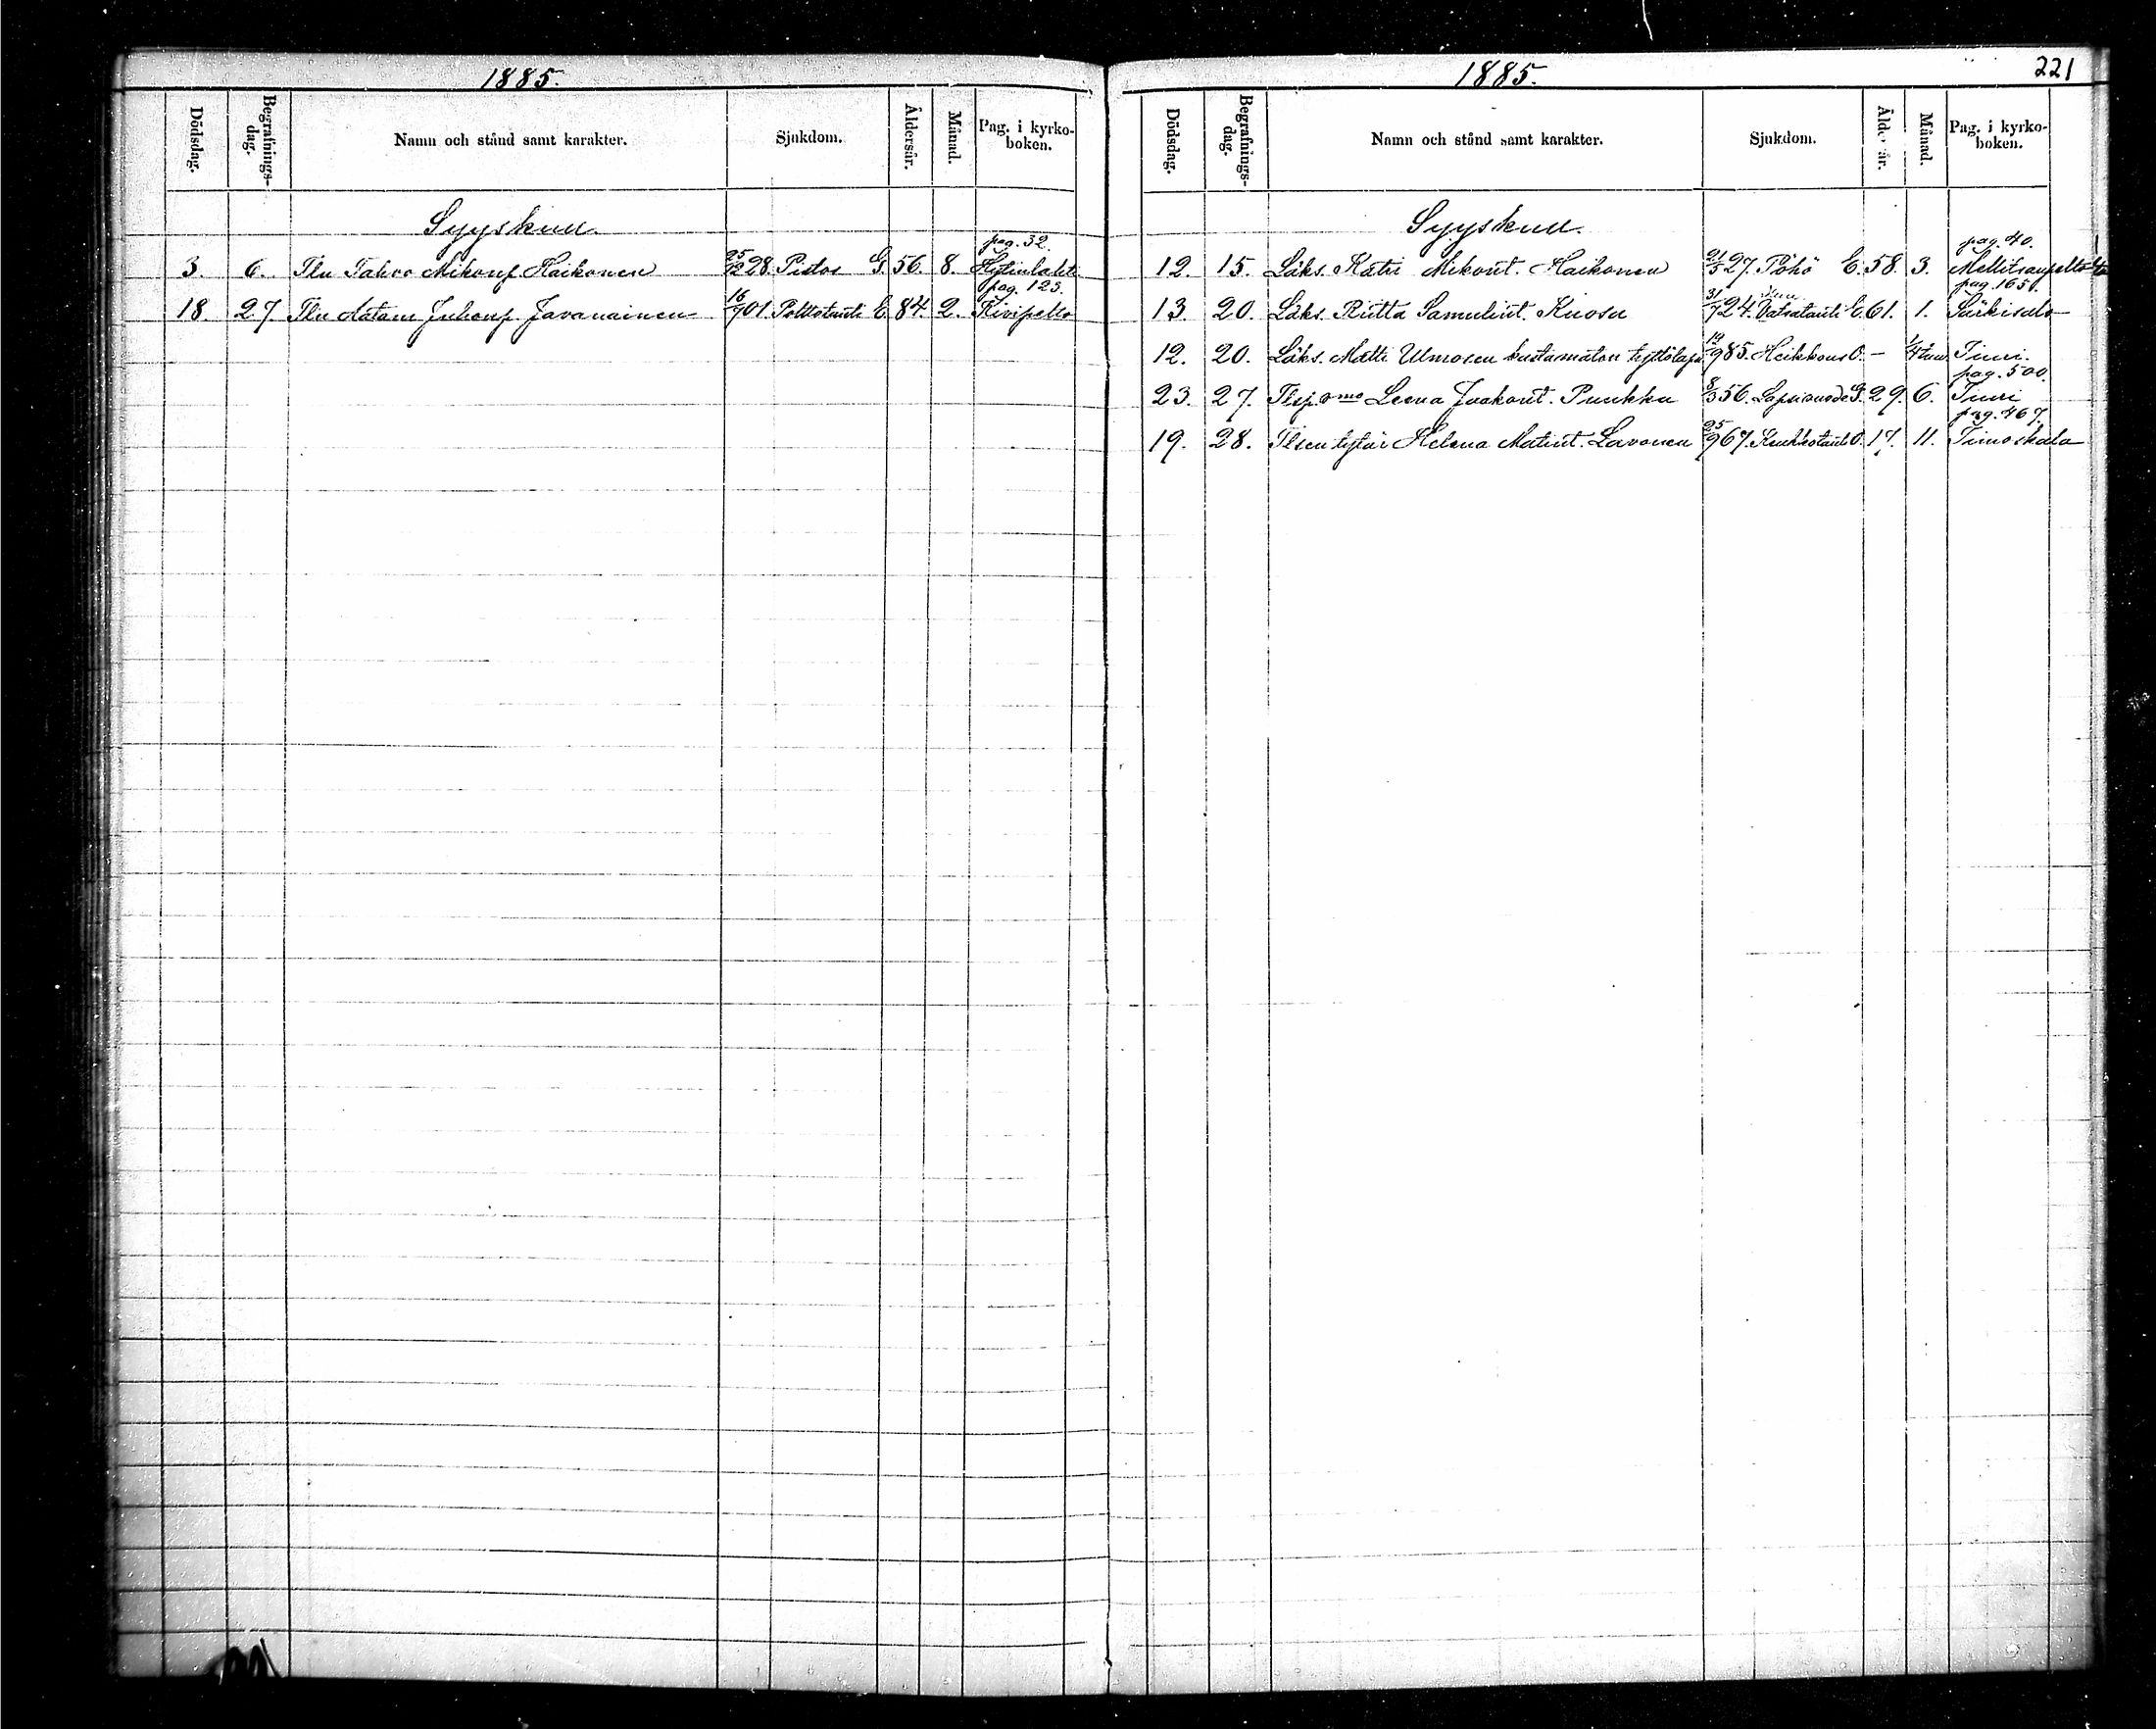 1885.
Dödsdag. Begrafnings-dag. Namn och stånd samt karakter. Sjukdom. Åldersår. Månad. Pag. i kyrko-boken.
Syyskuu.
pag. 32.
3. 6. Tln Tahvo Mikonp. Haikonen 25/12 28. Pistos G. 56. 8. Hytinlahti
pag. 123.
18. 27. Tln Aatam Juhonp. Javanainen 16/7 01. Polttotauti E. 84. 2. Kivipelto
1885.
221
Dödsdag. Begrafnings-dag. Namn och stånd samt karakter. Sjukdom. Åldersår. Månad. Pag. i kyrko-boken.
Syyskuu.
pag. 40.
12. 15. Läks. Katri Mikont. Haikonen 21/5 27. Pöhö E. 58. 3.
pag. 165.
13. 20. Läks. Riitta Samulint. Kuosu 31/7 24. Vatsatauti E. 61. 1. Särkisalo
12. 20. Läks. Matti Ulmosen kastamaton tyttölapsi 12/9 85. Heikkous O. - 1/4 Tiuri.
pag. 500.
23. 27. Tlsp. vmo Leena Jaakont. Puukka 8/3 56. Lapsivuode G. 29. 6. Tiuri
pag. 467
19. 28. Tlsen tytär Helena Matint. Lavonen 25/9 67. Keuhkotauti O. 17. 11. Timoskala